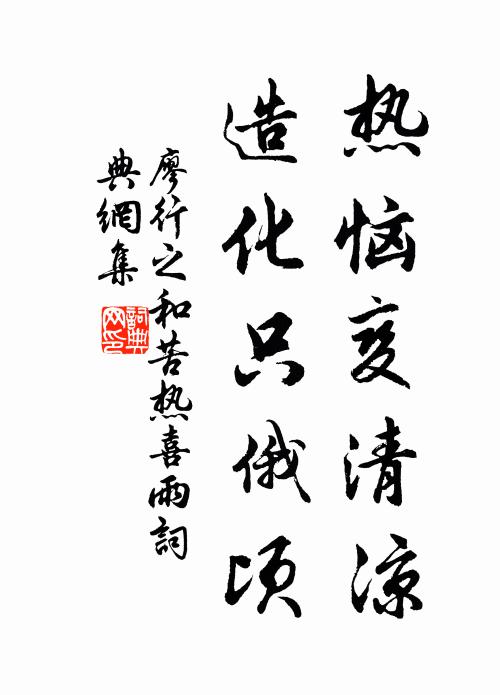 热恼变清凉
造化只俄顷
廖行之和苦热喜雨詞
典網集
詞典
网印